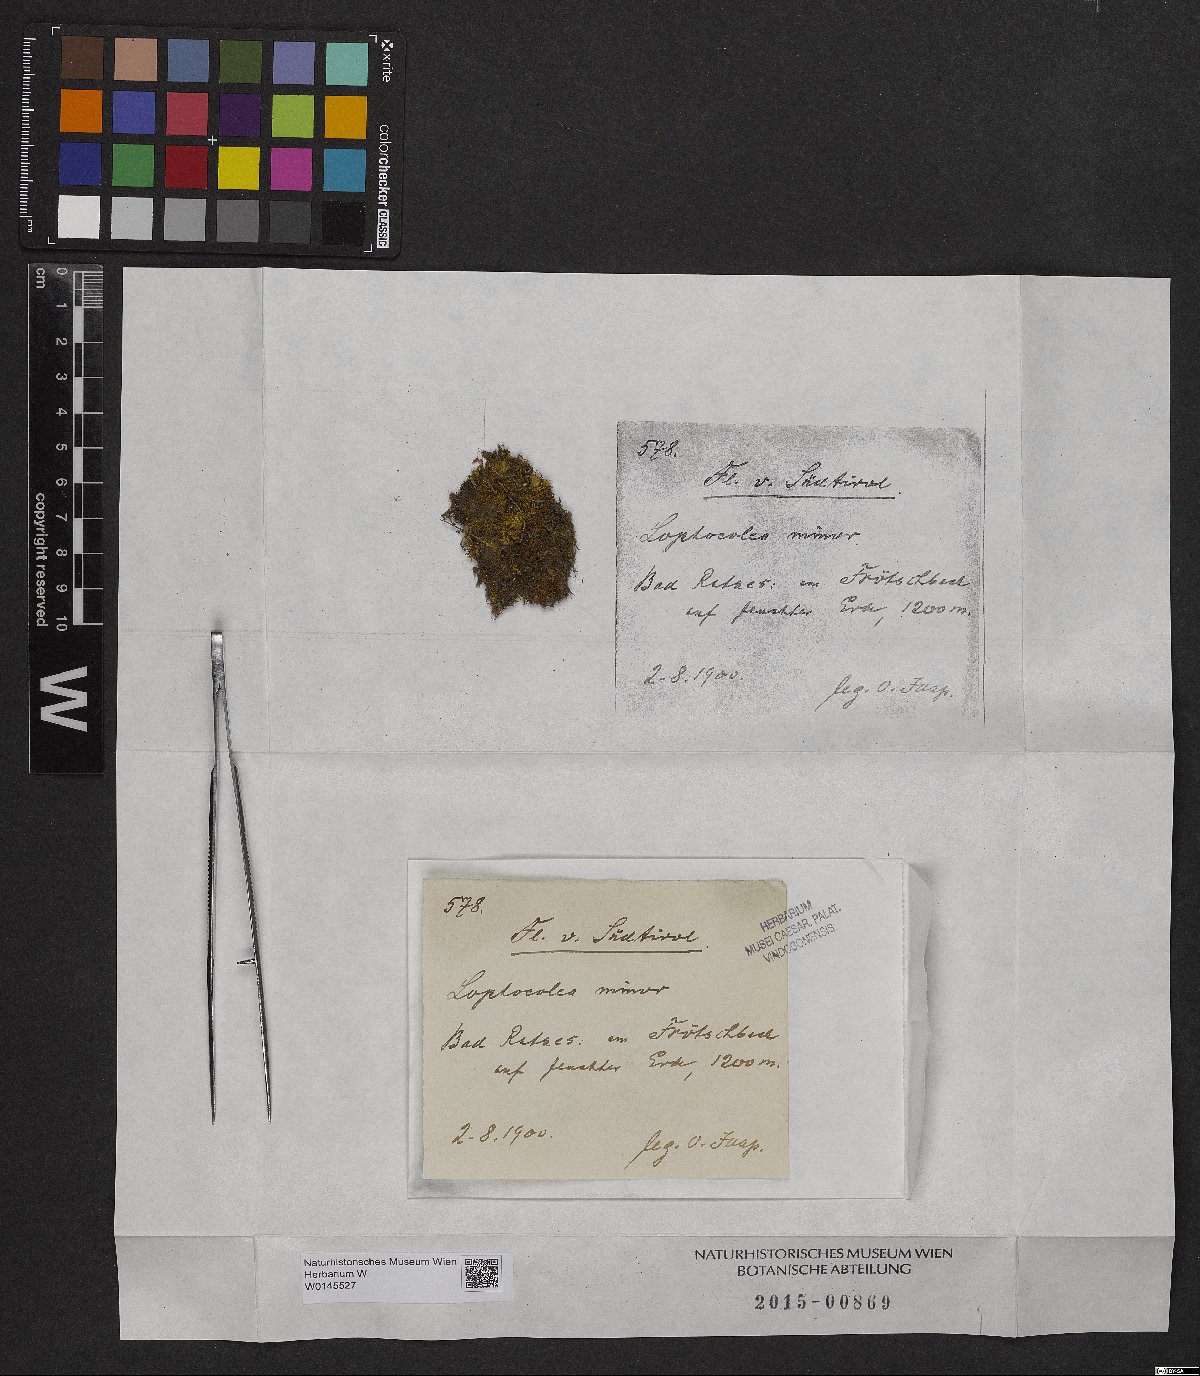 x-rite
colorchecker CLASSIC
mm
0 1 2 3 4 5 6 7 8 9 10
cm
copyright reserved
W
578.
Fl. v. Südtirol.
Lophocolea minor
Bad Ratzes: im Frötschbach
auf feuchter Erde, 1200 m.
2.8.1900.
leg. O. Jaap.
578.
Fl. v. Südtirol.
Lophocolea minor
Bad Ratzes: im Frötschbach
auf feuchter Erde, 1200 m.
2.8.1900.
leg. O. Jaap.
HERBARIUM
MUSEI CAESAR. PALAT.
VINDOBONENSIS
Naturhistorisches Museum Wien
Herbarium W
W0145527
NATURHISTORISCHES MUSEUM WIEN
BOTANISCHE ABTEILUNG
2015-00869
CC BY-SA